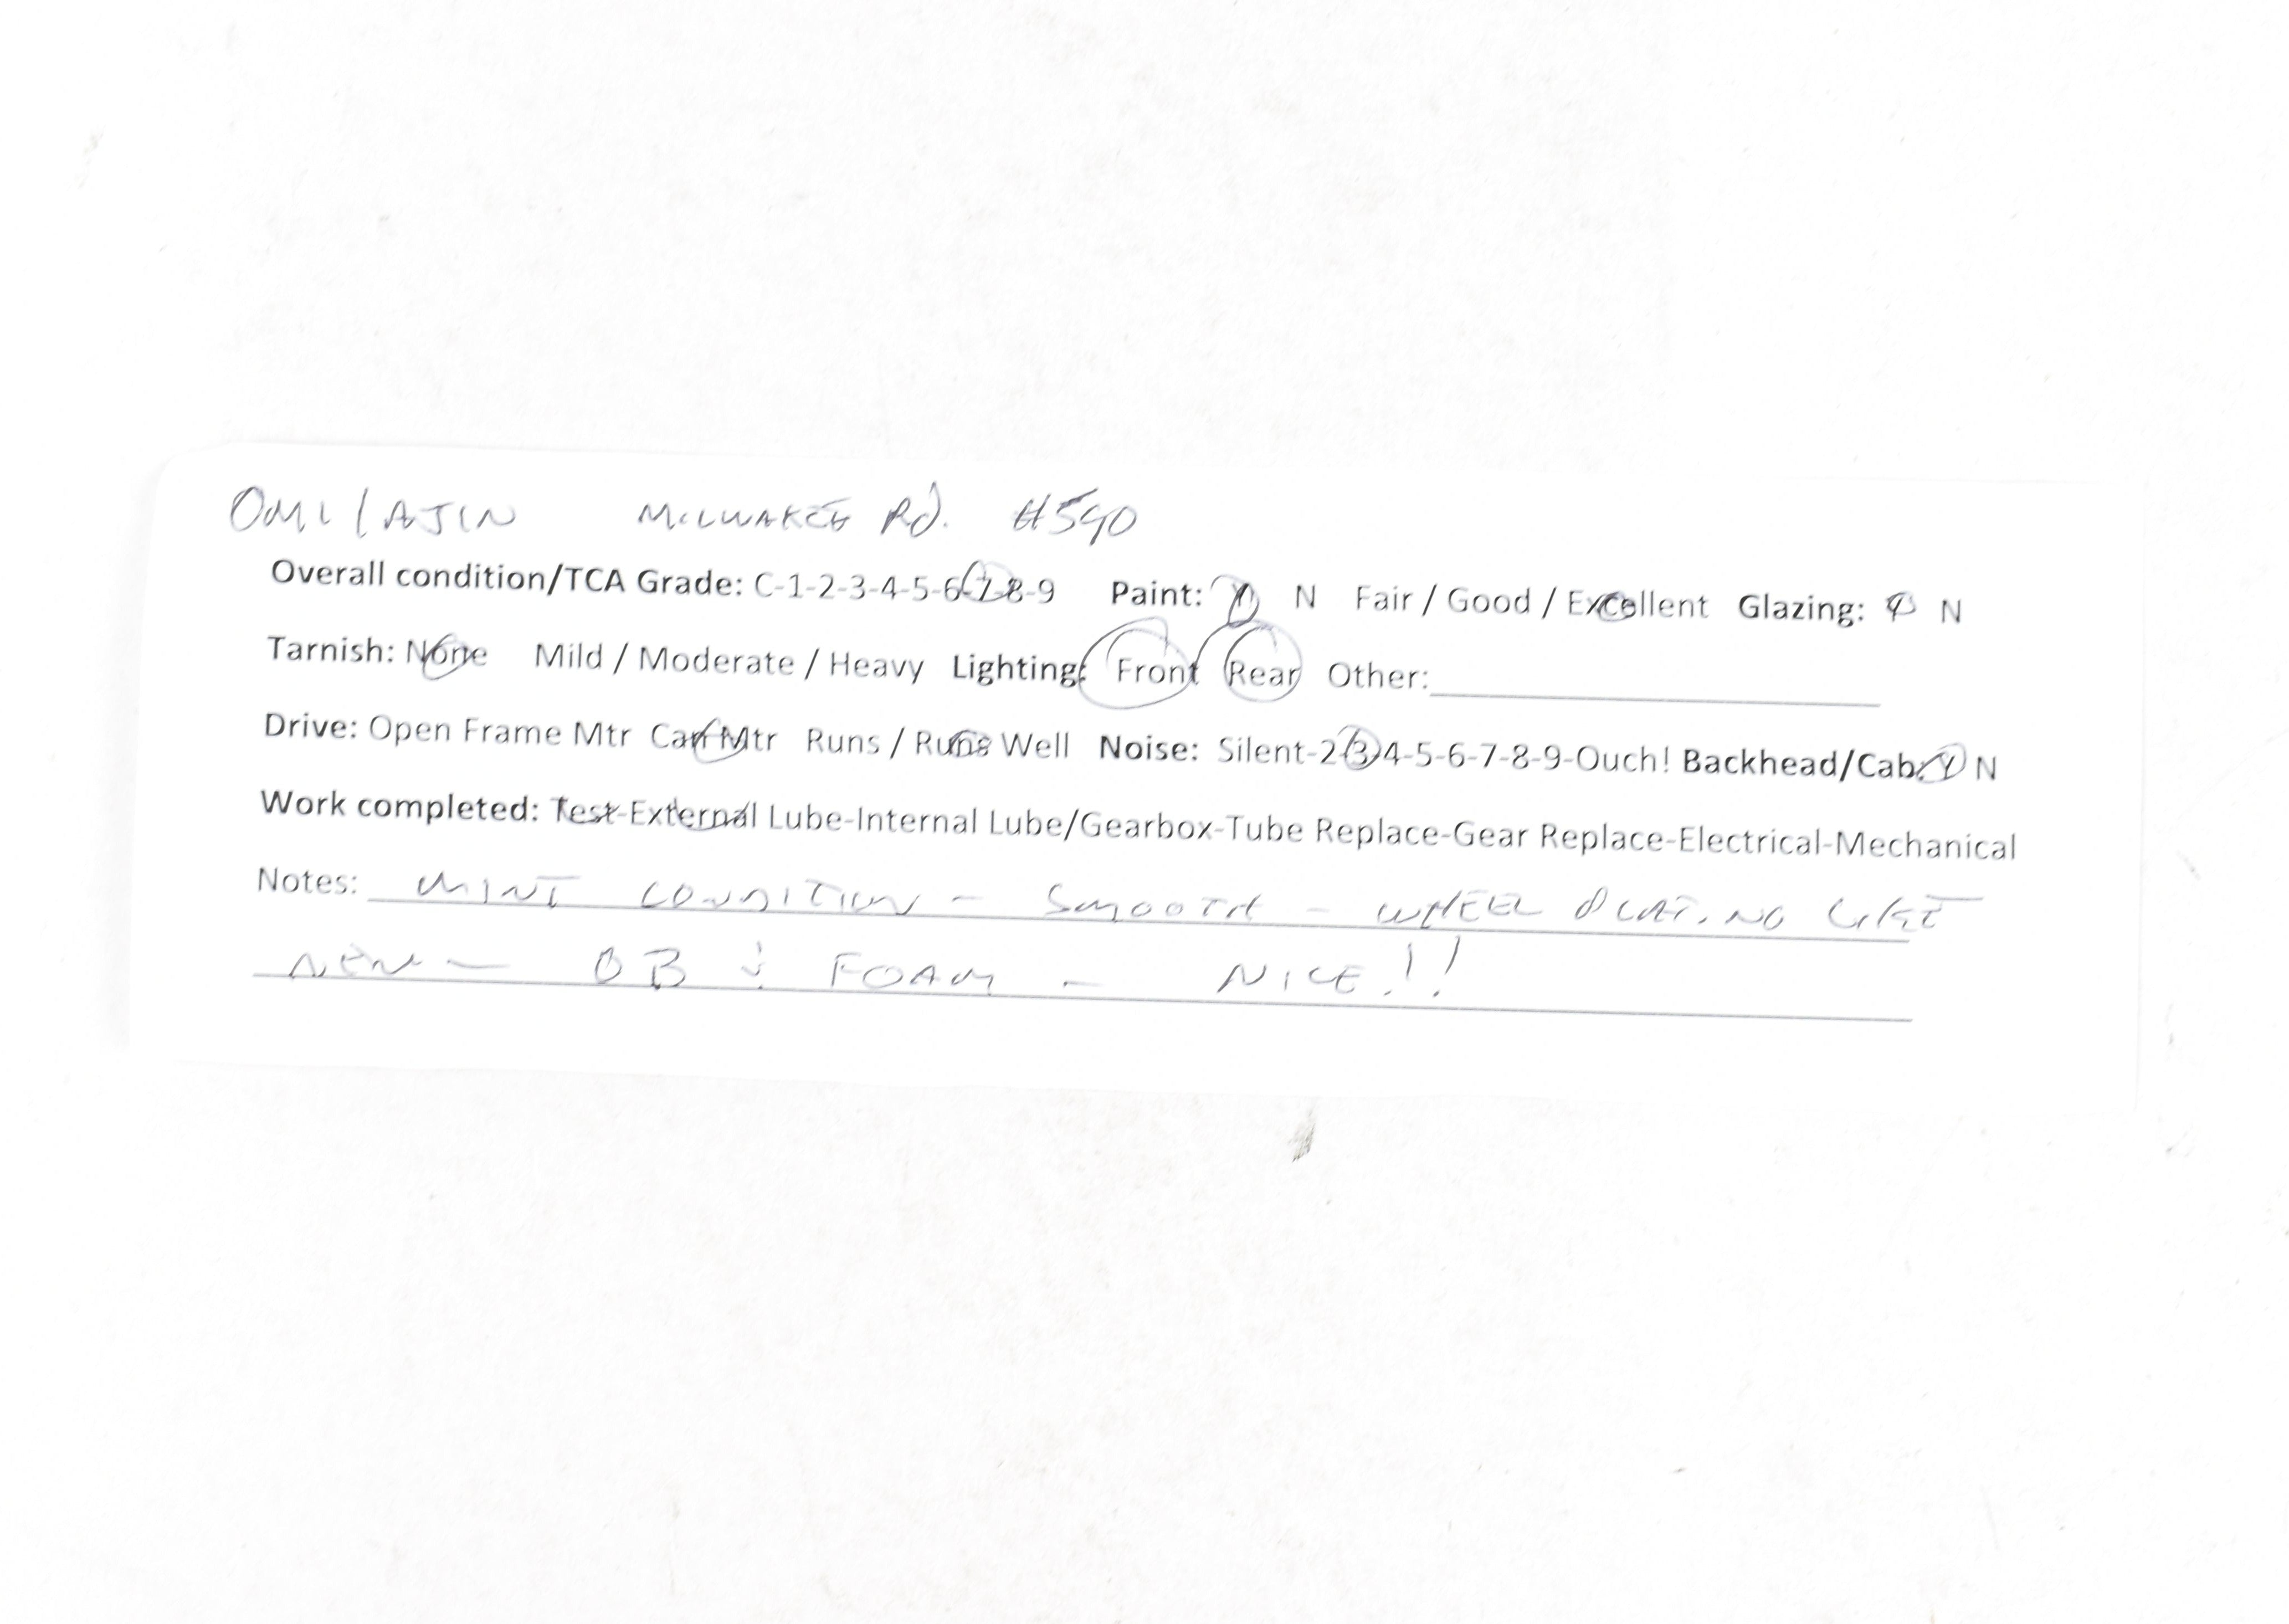 OMI / AJIN MILWAKEE Rd. #590
Overall condition/TCA Grade: C-1-2-3-4-5-6-7-8-9 Paint: Y N Fair / Good / Excellent Glazing: Y N
Tarnish: None Mild / Moderate / Heavy Lighting: Front Rear Other:
Drive: Open Frame Mtr Can Mtr Runs / Runs Well Noise: Silent-2-3-4-5-6-7-8-9-Ouch! Backhead/Cab: Y N
Work completed: Test-External Lube-Internal Lube/Gearbox-Tube Replace-Gear Replace-Electrical-Mechanical
Notes: MINT CONDITION - SMOOTH - WHEEL PLATING LIKE
NEW - OB & FOAM - NICE!!